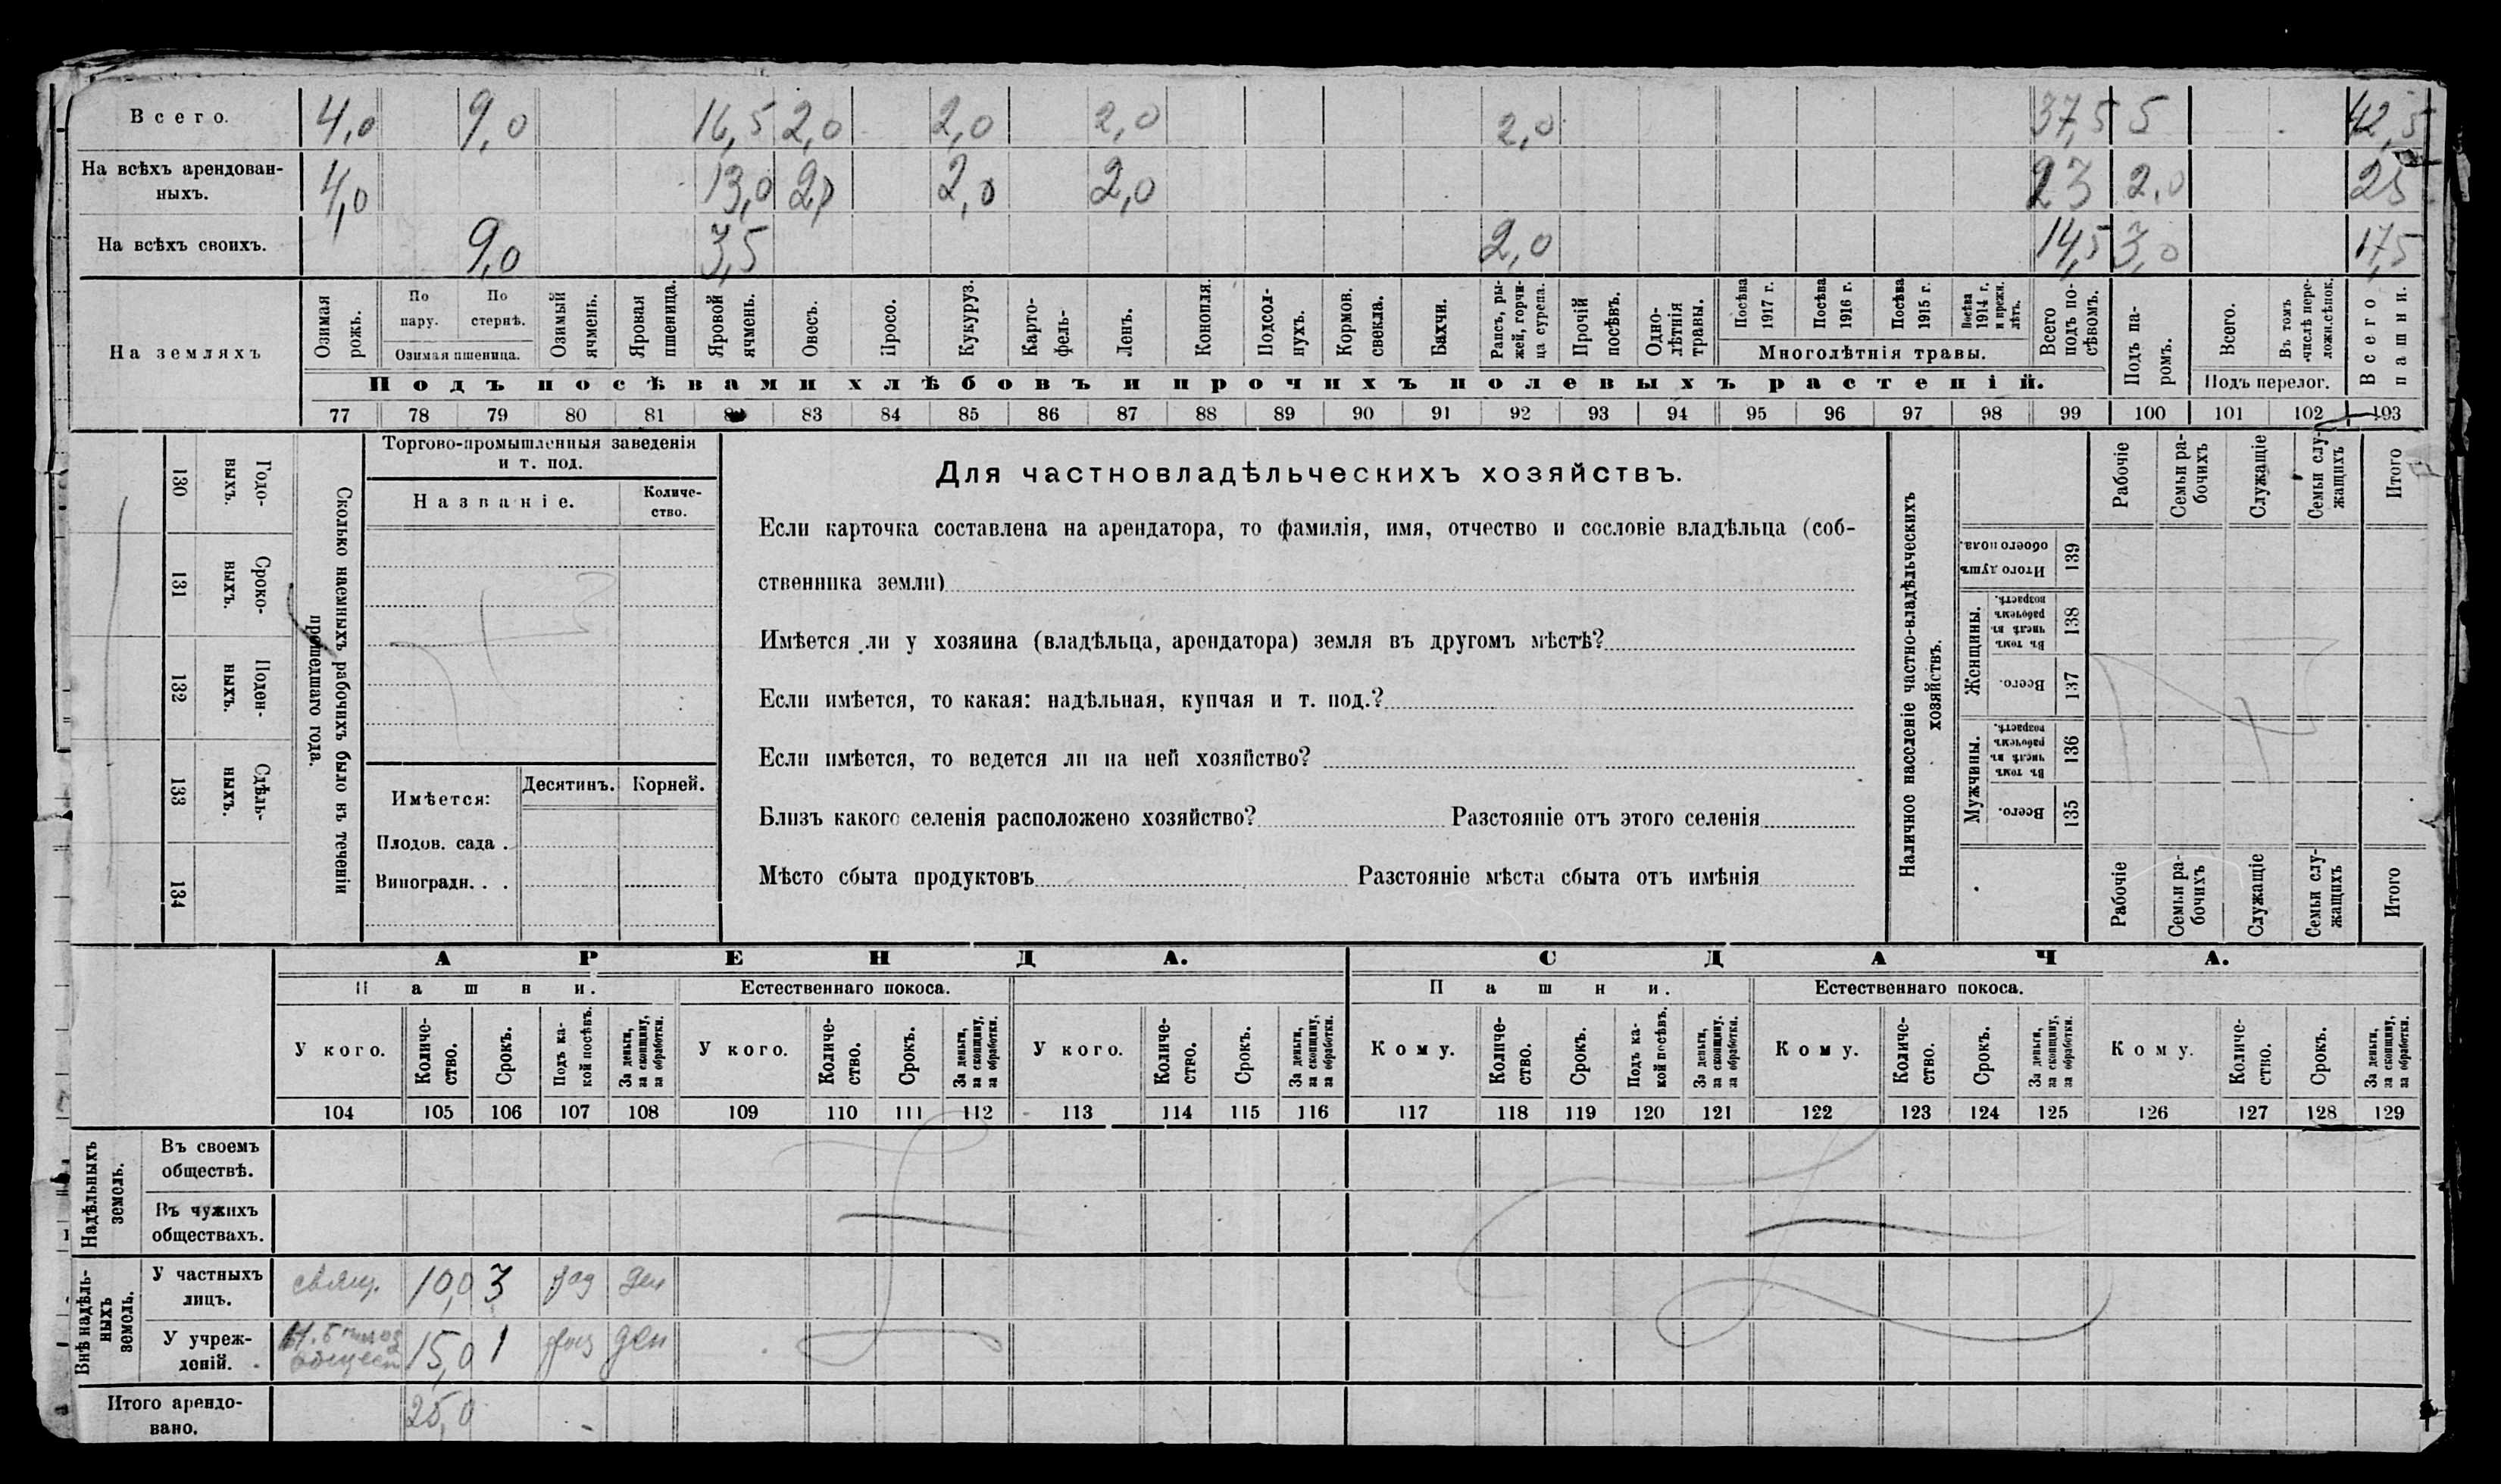 Всего. 4,0 9,0 16,5 2,0 2,0 2,0 2,0 37,5 5 42,5
На всѣхъ арендован-
ныхъ. 4,0 13,0 2,0 2,0 2,0 23 2,0 25
На всѣхъ своихъ. 9,0 3,5 2,0 14,5 3,0 17,5
На земляхъ
Озимая
рожь.
По
пару.
По
стернѣ.
Озимая пшеница.
Озимый
ячмень.
Яровая
пшеница.
Яровой
ячмень.
Овесъ.
Просо.
Кукуруз.
Карто-
фель-
Ленъ.
Конопля.
Подсол-
нухъ.
Кормов.
свекла.
Бахчи.
Рапсъ, ры-
жей, горчи-
ца сурепа.
Прочій
посѣвъ.
Одно-
лѣтнія
травы.
Посѣва
1917 г.
Посѣва
1916 г.
Посѣва
1915 г.
Посѣва
1914 г.
и прежн.
лѣтъ.
Многолѣтнія травы.
Всего
подъ по-
сѣвомъ.
Подъ па-
ромъ.
Всего.
Въ томъ
числѣ пере-
ложн.сѣнок.
Подъ перелог.
Всего
пашни.
Подъ посѣвами хлѣбовъ и прочихъ полевыхъ растеній.
77 78 79 80 81 83 84 85 86 87 88 89 90 91 92 93 94 95 96 97 98 99 100 101 102 103
130 Годо-
выхъ.
131 Сроко-
ныхъ.
132 Поден-
ныхъ.
133 Сдѣль-
ныхъ.
134
Сколько наемныхъ рабочихъ было въ теченіи
прошедшаго года.
Торгово-промышленныя заведенія
и т. под.
Названіе.
Количе-
ство.
Имѣется:
Десятинъ. Корней.
Плодов. сада .
Виноградн. . .
Для частновладѣльческихъ хозяйствъ.
Если карточка составлена на арендатора, то фамилія, имя, отчество и сословіе владѣльца (соб-
ственника земли)
Имѣется ли у хозяина (владѣльца, арендатора) земля въ другомъ мѣстѣ?
Если имѣется, то какая: надѣльная, купчая и т. под.?
Если имѣется, то ведется ли на ней хозяйство?
Близъ какого селенія расположено хозяйство? Разстояніе отъ этого селенія
Мѣсто сбыта продуктовъ Разстояніе мѣста сбыта отъ имѣнія
Наличное населеніе частно-владѣльческихъ
хозяйствъ.
Рабочіе
Семьи ра-
бочихъ
Служащіе
Семьи слу-
жащихъ
Итого
Итого душъ
обоего пола.
139
Женщины.
Въ томъ
числѣ въ
рабочемъ
возрастѣ.
138
Всего.
137
Мужчины.
Въ томъ
числѣ въ
рабочемъ
возрастѣ.
136
Всего.
135
Рабочіе
Семьи ра-
бочихъ
Служащіе
Семьи слу-
жащихъ
Итого
АРЕНДА. СДАЧА.
Пашни. Естественнаго покоса. Пашни. Естественнаго покоса.
У кого.
Количе-
ство.
Срокъ.
Подъ ка-
кой посѣвъ.
За деньги,
за скопщину,
за обработки.
У кого.
Количе-
ство.
Срокъ.
За деньги,
за скопщину,
за обработки.
У кого.
Количе-
ство.
Срокъ.
За деньги,
за скопщину,
за обработки.
Кому.
Количе-
ство.
Срокъ.
Подъ ка-
кой посѣвъ.
За деньги,
за скопщину,
за обработки.
Кому.
Количе-
ство.
Срокъ.
За деньги,
за скопщину,
за обработки.
Кому.
Количе-
ство.
Срокъ.
За деньги,
за скопщину,
за обработки.
104 105 106 107 108 109 110 111 112 113 114 115 116 117 118 119 120 121 122 123 124 125 126 127 128 129
Надѣльныхъ
земель.
Въ своемъ
обществѣ.
Въ чужихъ
обществахъ.
Внѣ надѣль-
ныхъ
земель.
У частныхъ
лицъ. свящ. 10,0 3 ден
У учреж-
деній. 15,0 1 ден
Итого арендо-
вано. 25,0